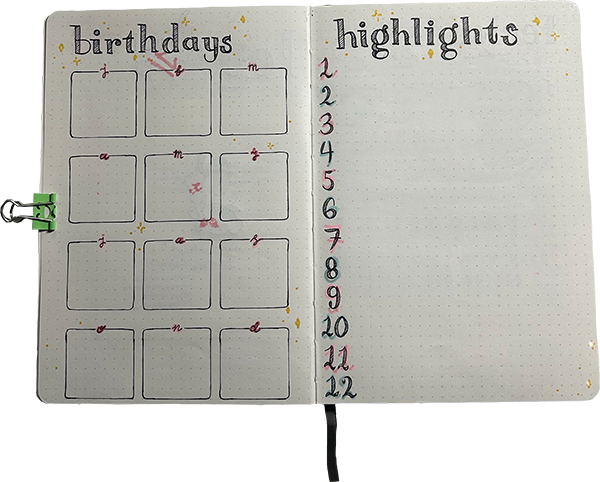 birthdays
j f m
a m j
j a s
o n d
highlights
1
2
3
4
5
6
7
8
9
10
11
12